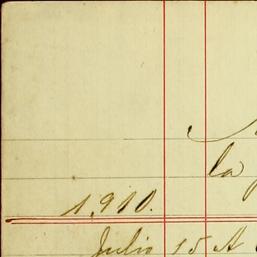 la
1,910.
Julio 15 A